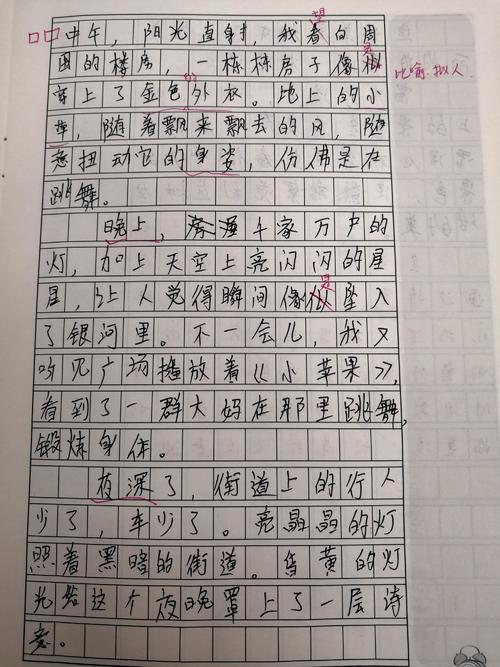 望
中午，阳光直射，我看向周
是
围的楼房，一栋栋房子像似 比喻.拟人
的
穿上了金色外衣。地上的小
草，随着飘来飘去的风，随
意扭动它的身姿，仿佛是在
跳舞。
晚上，千家万户的
灯，加上天空上亮闪闪的星
是
星，让人觉得瞬间像似坠入
了银河里。不一会儿，我又
听见广场播放着《小苹果》，
看到了一群大妈在那里跳舞，
锻炼身体。
夜深了，街道上的行人
少了，车少了。亮晶晶的灯
照着黑暗的街道。昏黄的灯
光给这个夜晚罩上了一层诗
意。